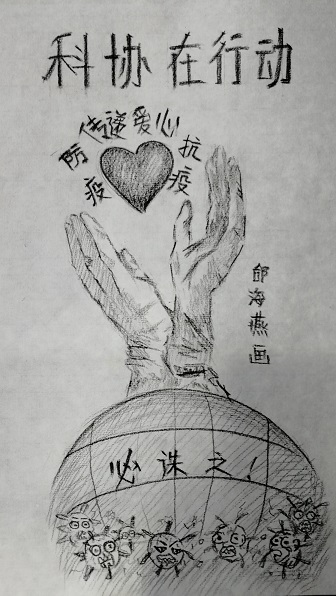 科协在行动
传递爱心
防疫
抗疫
邰海燕画
必诛之!